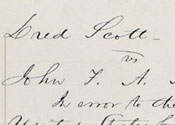 Dred Scott
vs
John F. A.
In error to the
United States